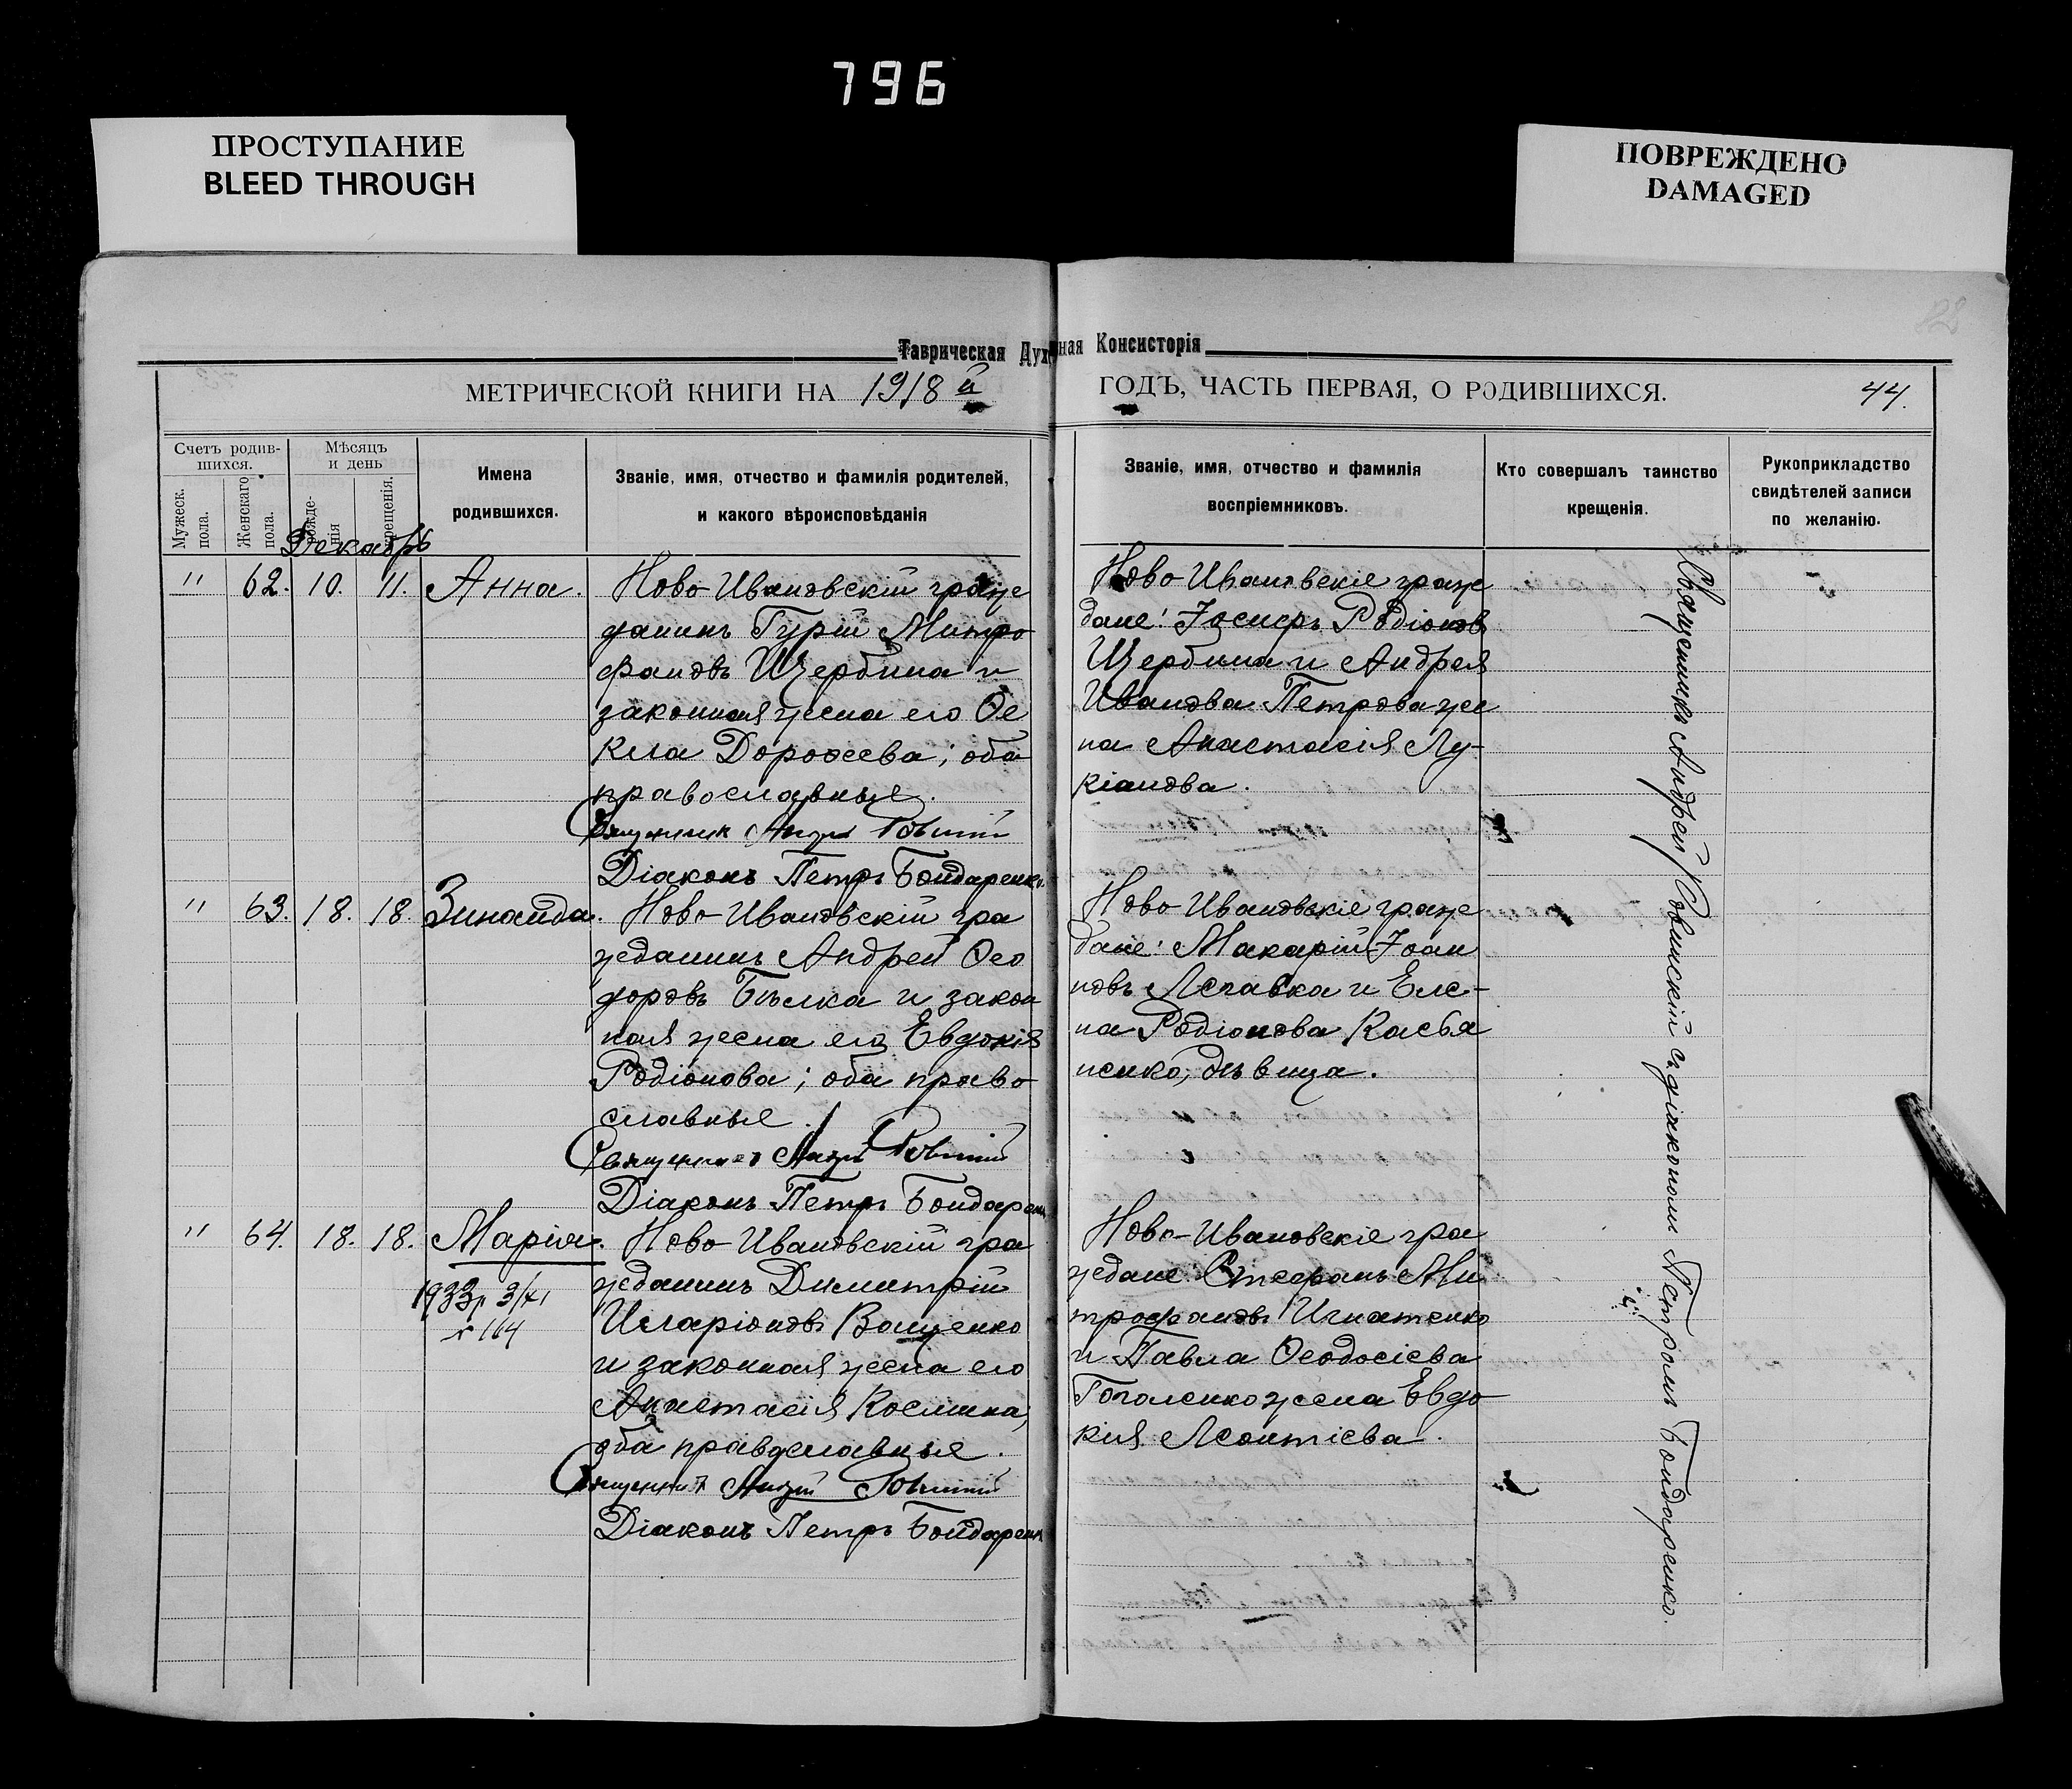 796
ПРОСТУПАНИЕ
BLEED THROUGH
ПОВРЕЖДЕНО
DAMAGED
Таврическая Духовная Консисторія
МЕТРИЧЕСКОЙ КНИГИ НА 1918 й ГОДЪ, ЧАСТЬ ПЕРВАЯ, О РОДИВШИХСЯ. 44.
Счетъ родив-
шихся.
Мужеск.
пола.
Женскаго
пола.
Мѣсяцъ
и день
рожде-
нія
крещенія.
Имена
родившихся.
Званіе, имя, отчество и фамилія родителей,
и какого вѣроисповѣданія
Званіе, имя, отчество и фамилія
воспріемниковъ.
Кто совершалъ таинство
крещенія.
Рукоприкладство
свидѣтелей записи
по желанію.
Декабрь
" 62. 10. 11. Анна.
Ново-Ивановскій граж
данинъ Гурій Митро
фановъ Щербина и
законная жена его Ѳе
кла Дороѳеева; оба
православные.
Священник Андрей
Діаконъ Петръ Бондаренко
Ново-Ивановскіе граж
дане: Іосифъ Родіоновъ
Щербина и Андрея
Иванова Петрова же
на Анастасія Лу-
кіанова.
" 63. 18. 18. Зинаида.
Ново-Ивановскій гра
жданинъ Андрей Ѳео
доровъ Бѣлка и закон
ная жена его Евдокія
Родіонова; оба право
славные.
Священникъ Андрей
Діаконъ Петръ Бондаренко
Ново-Ивановскіе граж
дане: Макарій Іоан
новъ Лепавка и Еле-
на Родіонова Касья
ненко, дѣвица.
" 64. 18. 18. Марія.
1933 г 3/XI
№ 164
Ново-Ивановскій гра
жданинъ Димитрій
Иларіоновъ Ващенко
и законная жена его
Анастасія Космина,
оба православные.
Священникъ Андрей
Діаконъ Петръ Бондаренко
Ново-Ивановскіе гра
ждане: Стефанъ Ми
трофановъ Игнатенко
и Павла Ѳеодосіева
Гоголенко жена Евдо
кия Леонтіева.
Священникъ Андрей съ діакономъ Петромъ Бондаренко.